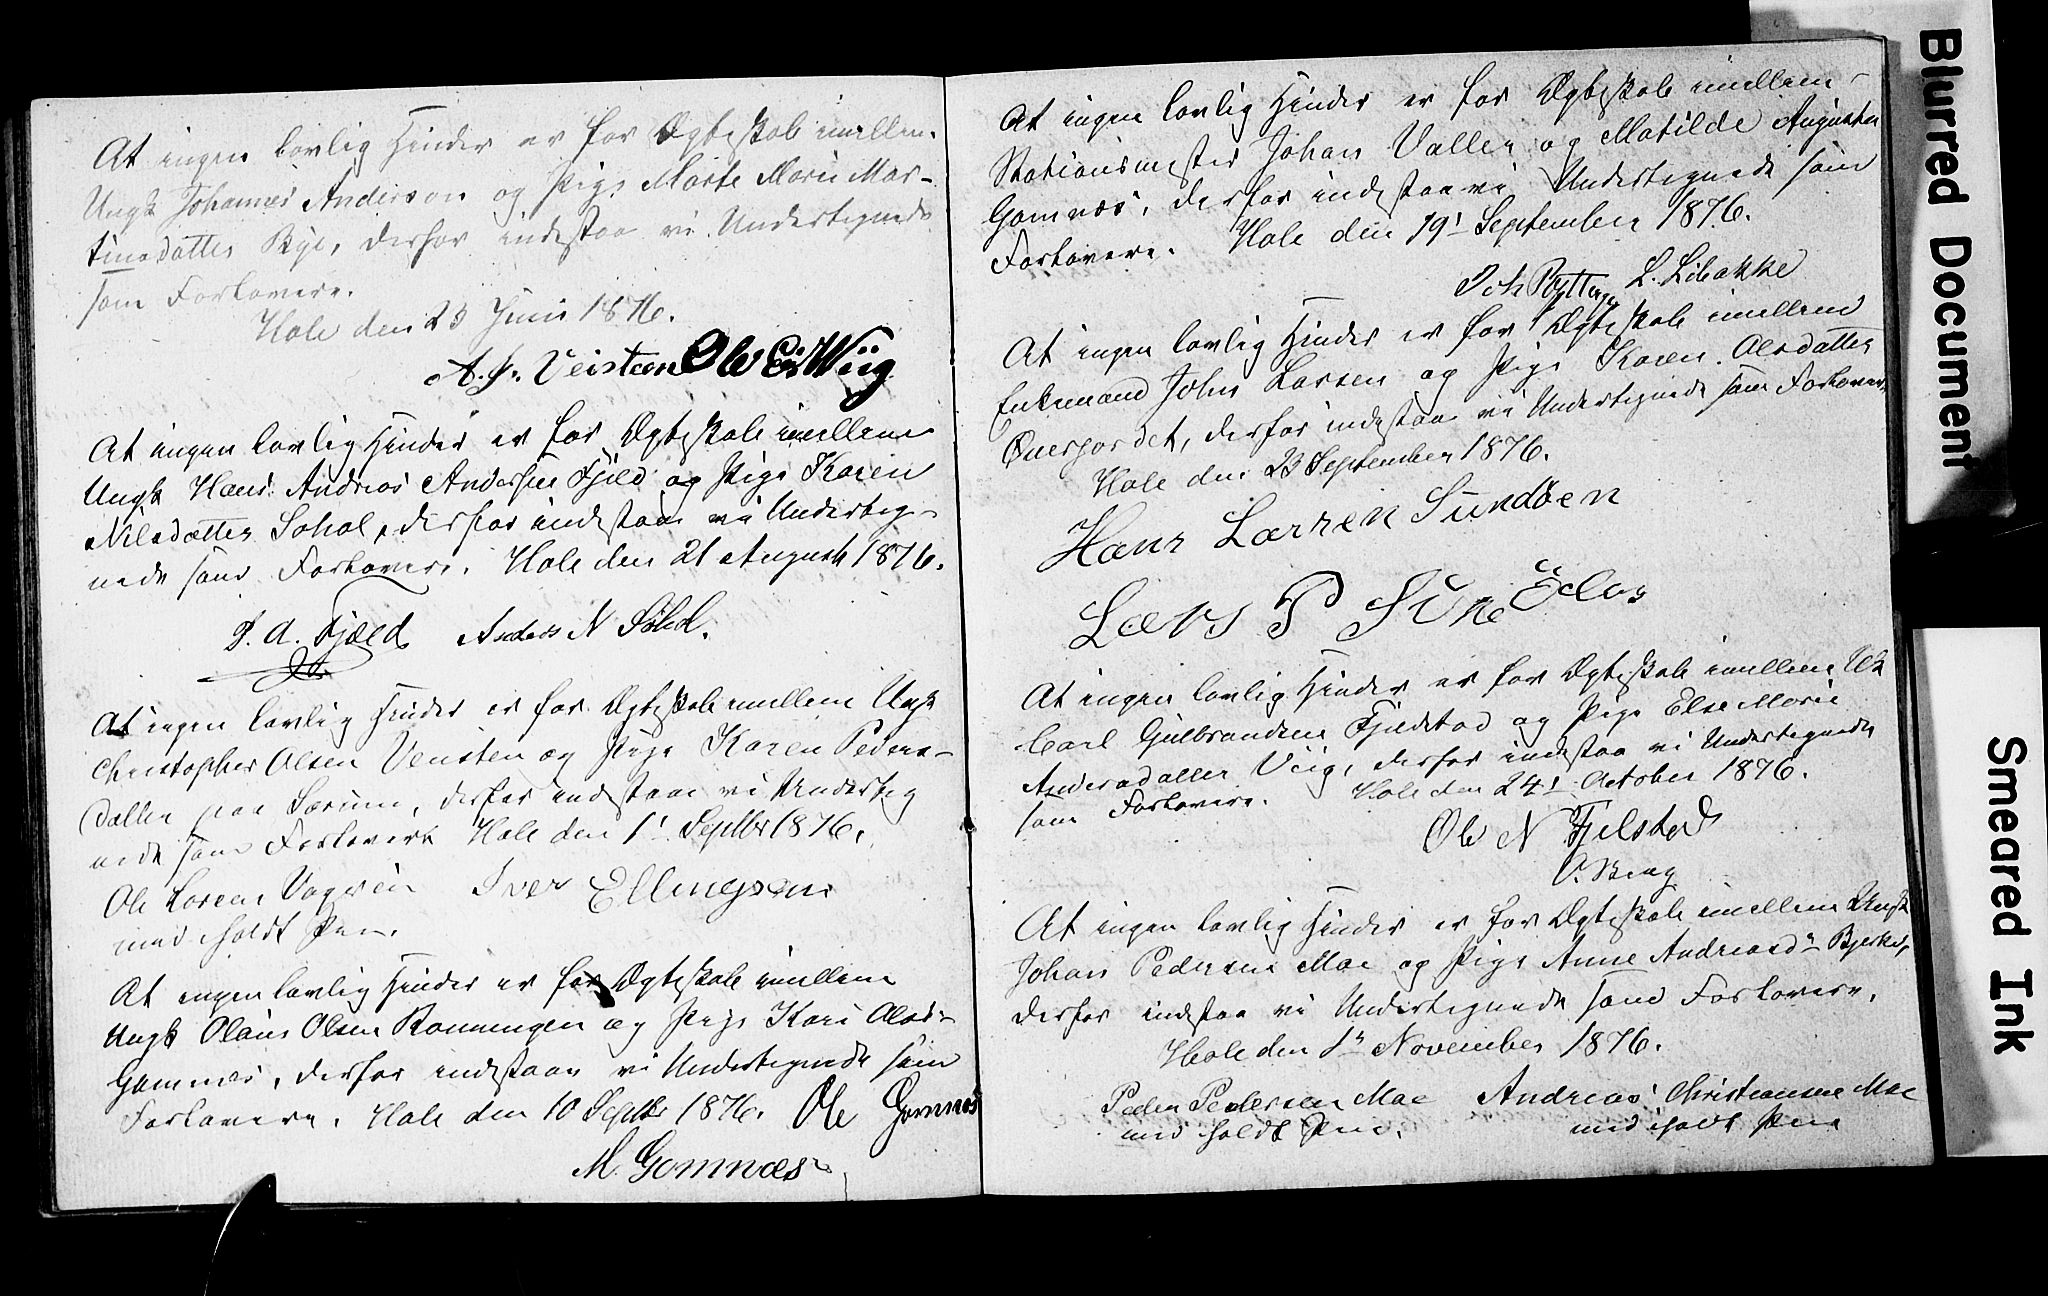 At ingen lovlig Hinder er for Ægteskab imellem
Ungk Johannes Anderson og Pige Marte Marie Mar-
tinsdatter Bye, derfor indestaa vi Undertegnede
som Forlovere.
Hole den 23 Juni 1876.
A. P. Veisteen Ole Er Wiig
At ingen lovlig Hinder er for Ægteskab imellem
Ungk Hans Andreas Andersen Fjeld og Pige Karen
Nilsdatter Sohol, derfor indestaa vi Underteg-
nede som Forlovere. Hole den 21 August 1876.
A. Fjæld Anders N Sohol.
At ingen lovlig Hinder er for Ægteskab imellem Ungk
Christopher Olsen Vensten og Pige Karen Peders-
datter paa Sørum, derfor indestaa vi Underteg
nede som Forlovere Hole den 1' Septbr 1876.
Ole Iver Ellingsen
med iholdt Pen.
At ingen lovlig Hinder er for Ægteskab imellem
Ungk Olaus Olsen Rønningen og Pige Kari Olsd:
Gomnæs, derfor indestaa vi Undertegnede som
Forlovere. Hole den 10 Septbr 1876. Ole Gomnæs
M. Gomnæs
At ingen lovlig Hinder er for Ægteskab imellem
Stationsmester Johan Valler og Matilde Augusta
Gomnæs, derfor indestaa vi Undertegnede som
Forlovere. Hole den 19' September 1876.
Joh L. Libakke
At ingen lovlig Hinder er for Ægteskab imellem
Enkemand John Larsen og Pige Karen Olsdatter
Øversjordet, derfor indestaa vi Undertegnede som Forlovere,
Hole den 23 September 1876.
Hans Larsen Sundøen
Lars P
At ingen lovlig Hinder er for Ægteskab imellem Uk
Carl Gulbrandsen Fjeldstad og Pige Else Marie
Andersdatter Viig, derfor indestaa vi Undertegnede
som Forlovere. Hole den 24' October 1876.
Ole N Fjelstad
O. Berg
At ingen lovlig Hinder er for Ægteskab imellem Ungk
Johan Pedersen Moe og Pige Anne Andreasdr Bjerke,
derfor indestaa vi Undertegnede som Forlovere.
Hole den 1ste November 1876.
Peder Pedersen Moe Andreas Christiansen Moe
med iholdt Pen. med iholdt Pen
Blurred Document
Smeared Ink